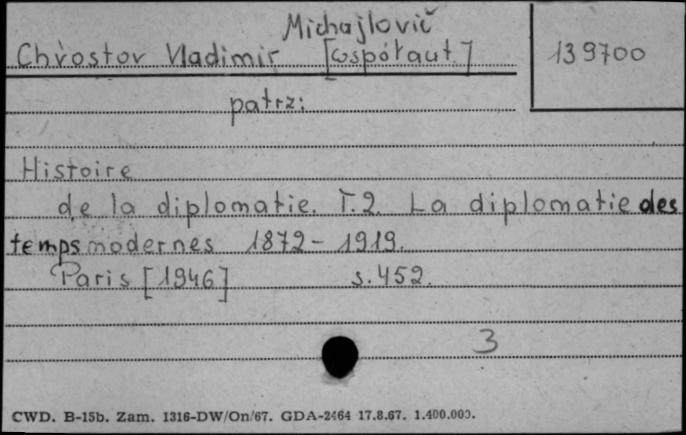 Michajlovič
Chrostov Vladimir [współaut.] 139700
patrz:
Histoire
de la diplomatie. T.2. La diplomatie des
temps modernes 1872 - 1919.
Paris [1946] s. 452.
3
CWD. B-15b. Zam. 1316-DW/On/67. GDA-2464 17.8.67. 1.400.000.